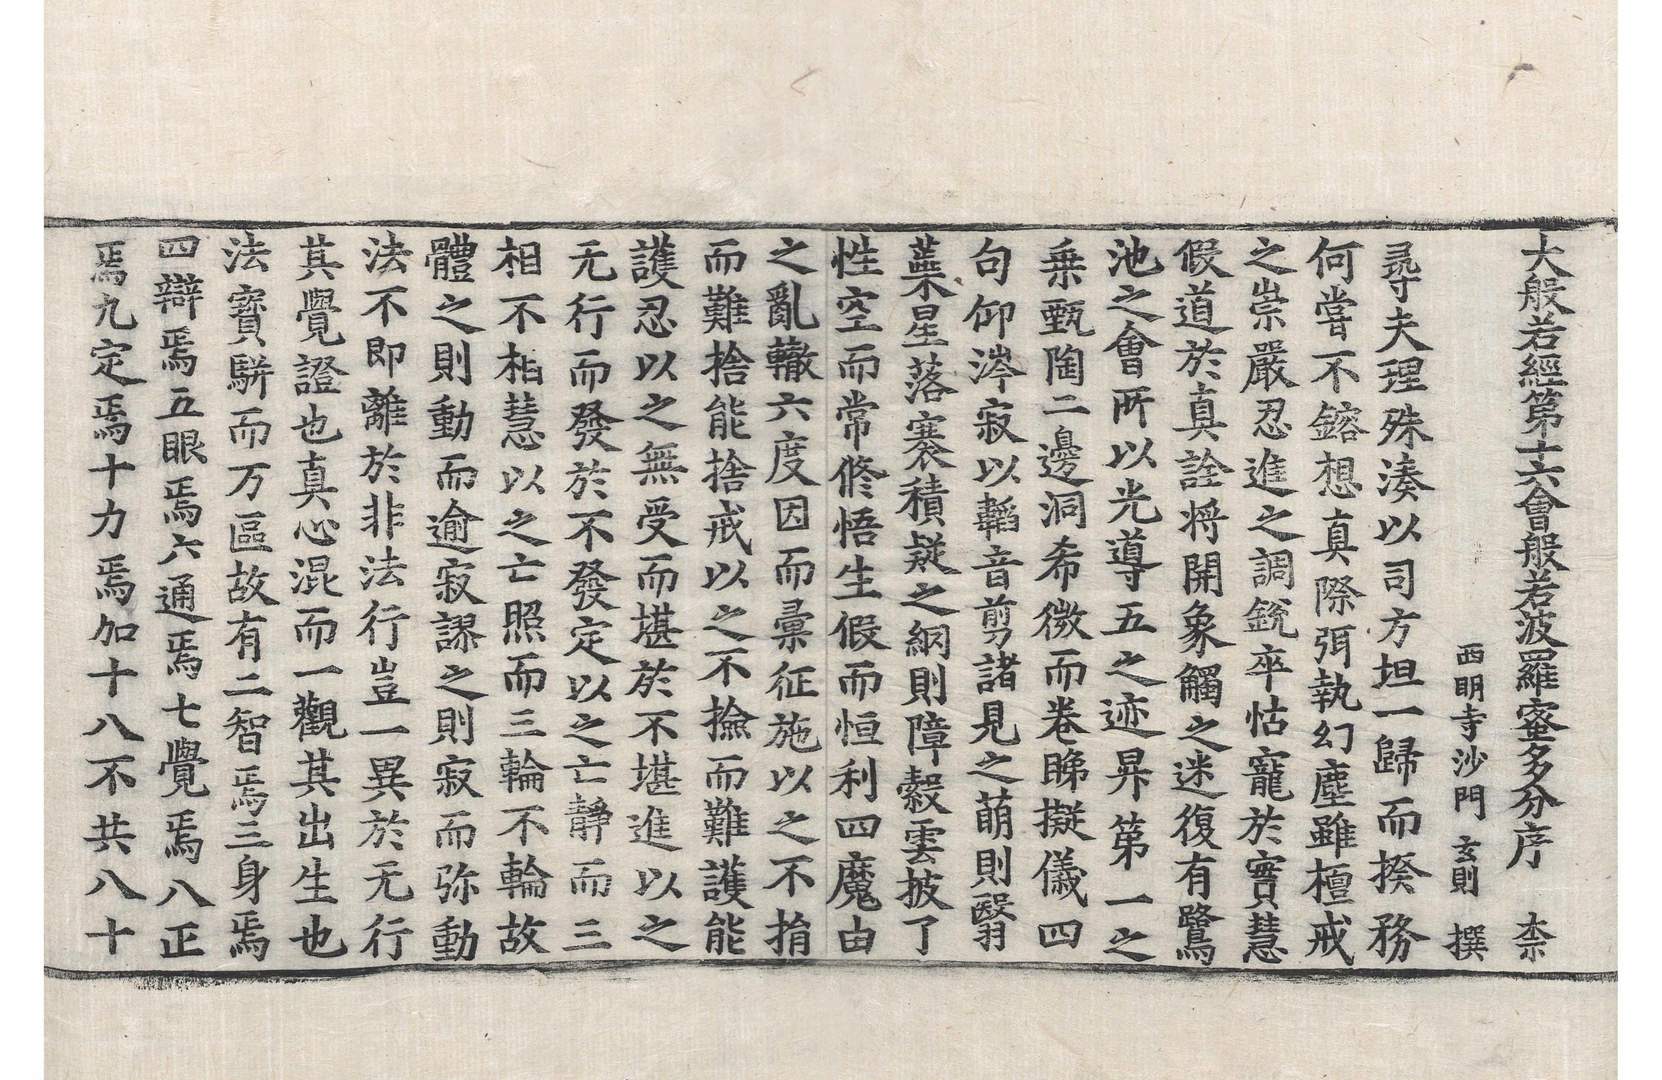 大般若經第十六會般若波羅蜜多分序　柰
西明寺沙門 玄則 撰
尋夫理殊湊以司方坦一歸而揆務
何嘗不鎔想真際弭執幻塵雖檀戒
之崇嚴忍進之調銳卒怙寵於實慧
假道於真詮將開象觸之迷復有鷺
池之會所以光導五之迹昇第一之
乗甄陶二邊洞希微而卷睇擬儀四
句仰涔寂以韜音剪諸見之萌則翳
蘂星落褰積疑之網則障縠雲披了
性空而常修悟生假而恒利四魔由
之亂轍六度因而彙征施以之不捐
而難捨能捨戒以之不撿而難護能
護忍以之無受而堪於不堪進以之
无行而發於不發定以之亡靜而三
相不相慧以之亡照而三輪不輪故
體之則動而逾寂謬之則寂而弥動
法不即離於非法行豈一異於无行
其覺證也真心混而一觀其出生也
法寶駢而万區故有二智焉三身焉
四辯焉五眼焉六通焉七覺焉八正
焉九定焉十力焉加十八不共八十